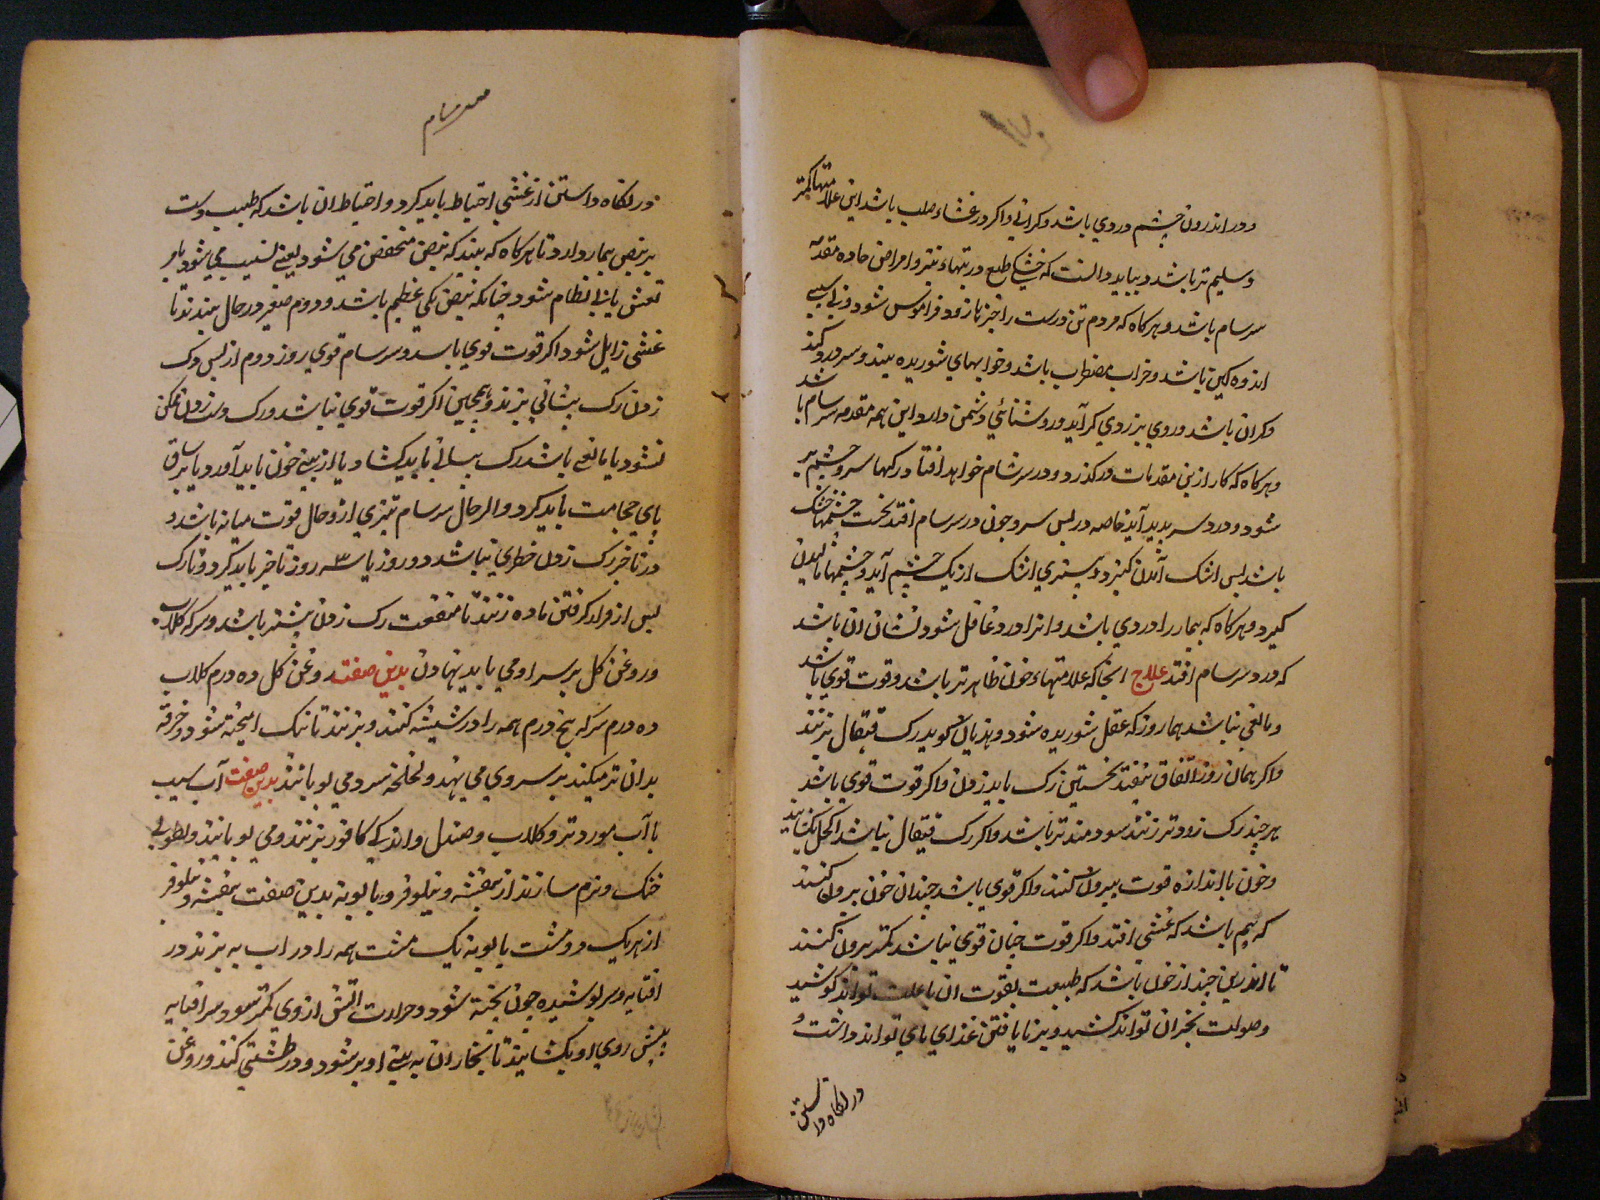 ودر اندرون چشم دردی باشد و کرانی واکر در غشاء صلب باشد این علامتها کمتر
وسلیم تر باشد و بباید دانست که خشکی طبع در تبهاء تیز و امراض حاده مقدمه
سرسام باشد و هرکاه که مردم تن درست را خبر تازه زود فراموش شود و بی سببی
اندوهکین باشد و خواب مضطرب باشد و خوابهای شوریده بیند و سر درد کند
وکران باشد و روی بر روی کراید و روشنائی دشمن دارد این همه مقدمه سرسام باشد
وهرکاه که کار ازین مقدمات درکذرد و در سرسام خواهد افتاد رکها سر و چشم پر
شود و درد سر پدید آید خاصه در پس سر و چون در سرسام افتد نخست چشمها خشک
باشد پس اشک آمدن کیرد و بیشتری اشک از یک چشم آید و چشمها مالیدن
کیرد و هرکاه که بیمار را دردی باشد و از آن درد غافل شود نشان آن باشد
که در سرسام افتد علاج انجا که علامتهاء خون ظاهرتر باشد و قوت قوی باشد
ومانعی نباشد هماروز که عقل شوریده شود و هذیان کوید رک قیفال بزنند
واکر همان روز اتفاق نیفتد نخستین رک باید زدن واکر قوت قوی باشد
هرچند رک زودتر زنند سودمندتر باشد واکر رک قیفال نباشد اکحل بکشایند
وخون باندازه قوت بیرون کنند واکر قوی باشد چندان خون بیرون کنند
که بیم باشد که غشی افتد واکر قوت چنان قوی نباشد کمتر بیرون کنند
تا اندرین چند از خون باشد که طبیعت بقوت آن با علت تواند کوشید
وصولت بحران تواند کشید و بر نایافتن غذای پای تواند داشت و
در نکاه داشتن
سرسام
در نکاه داشتن از غشی احتیاط باید کرد و احتیاط آن باشد که طبیب دست
بر نبض بیمار دارد تا هرکاه که بیند که نبض منخفض می شود یعنی نشیب می شود یا مر
تعش یا بی نظام شود چنانکه نبض یکی عظیم باشد و دوم صغیر در حال ببندند تا
غشی زایل شود اکر قوت قوی باشد و سرسام قوی روز دوم از پس رک
زدن رک پیشانی بزنند و همچنین اکر قوت قوی نباشد و رک دست زدن ممکن
نشود یا مانعی باشد رک پیشانی باید کشاد یا از بینی خون باید آورد یا بر ساق
پای حجامت باید کرد و اکر حال سرسام تیزی ازو حال قوت میانه باشد و
در تاخیر رک زدن خطری نباشد دو روز یا سه روز تاخیر باید کرد تا رک
پس از قرار کرفتن ماده زنند تا منفعت رک زدن بیشتر باشد و سرکه کلاب
وروغن کل بر سر او می باید نهادن بدین صفت روغن کل ده درم کلاب
ده درم سرکه پنج درم همه را در شیشه کنند و بزنند تا نیک امیخته شود و خرقه
بدان تر میکنند بر سر وی می نهند و لخلخه سرد می بویانند بدین صفت آب سیب
با آب مورد تر و کلاب و صندل و اندکی کافور بزنند و می بویانند و نطولی
خنک و نرم سازند از بنفشه و نیلوفر و بابونه بدین صفت بنفشه و نیلوفر
از هریک دو مشت بابونه یک مشت همه را در اب به پزند در
افتابه و سر پوشیده چون پخته شود و حرارت آتش از وی کمتر شود سر افتابه
پیش روی او بکشایند تا بخار آن به بینی او بر شود و در طشتی کنند و روغن